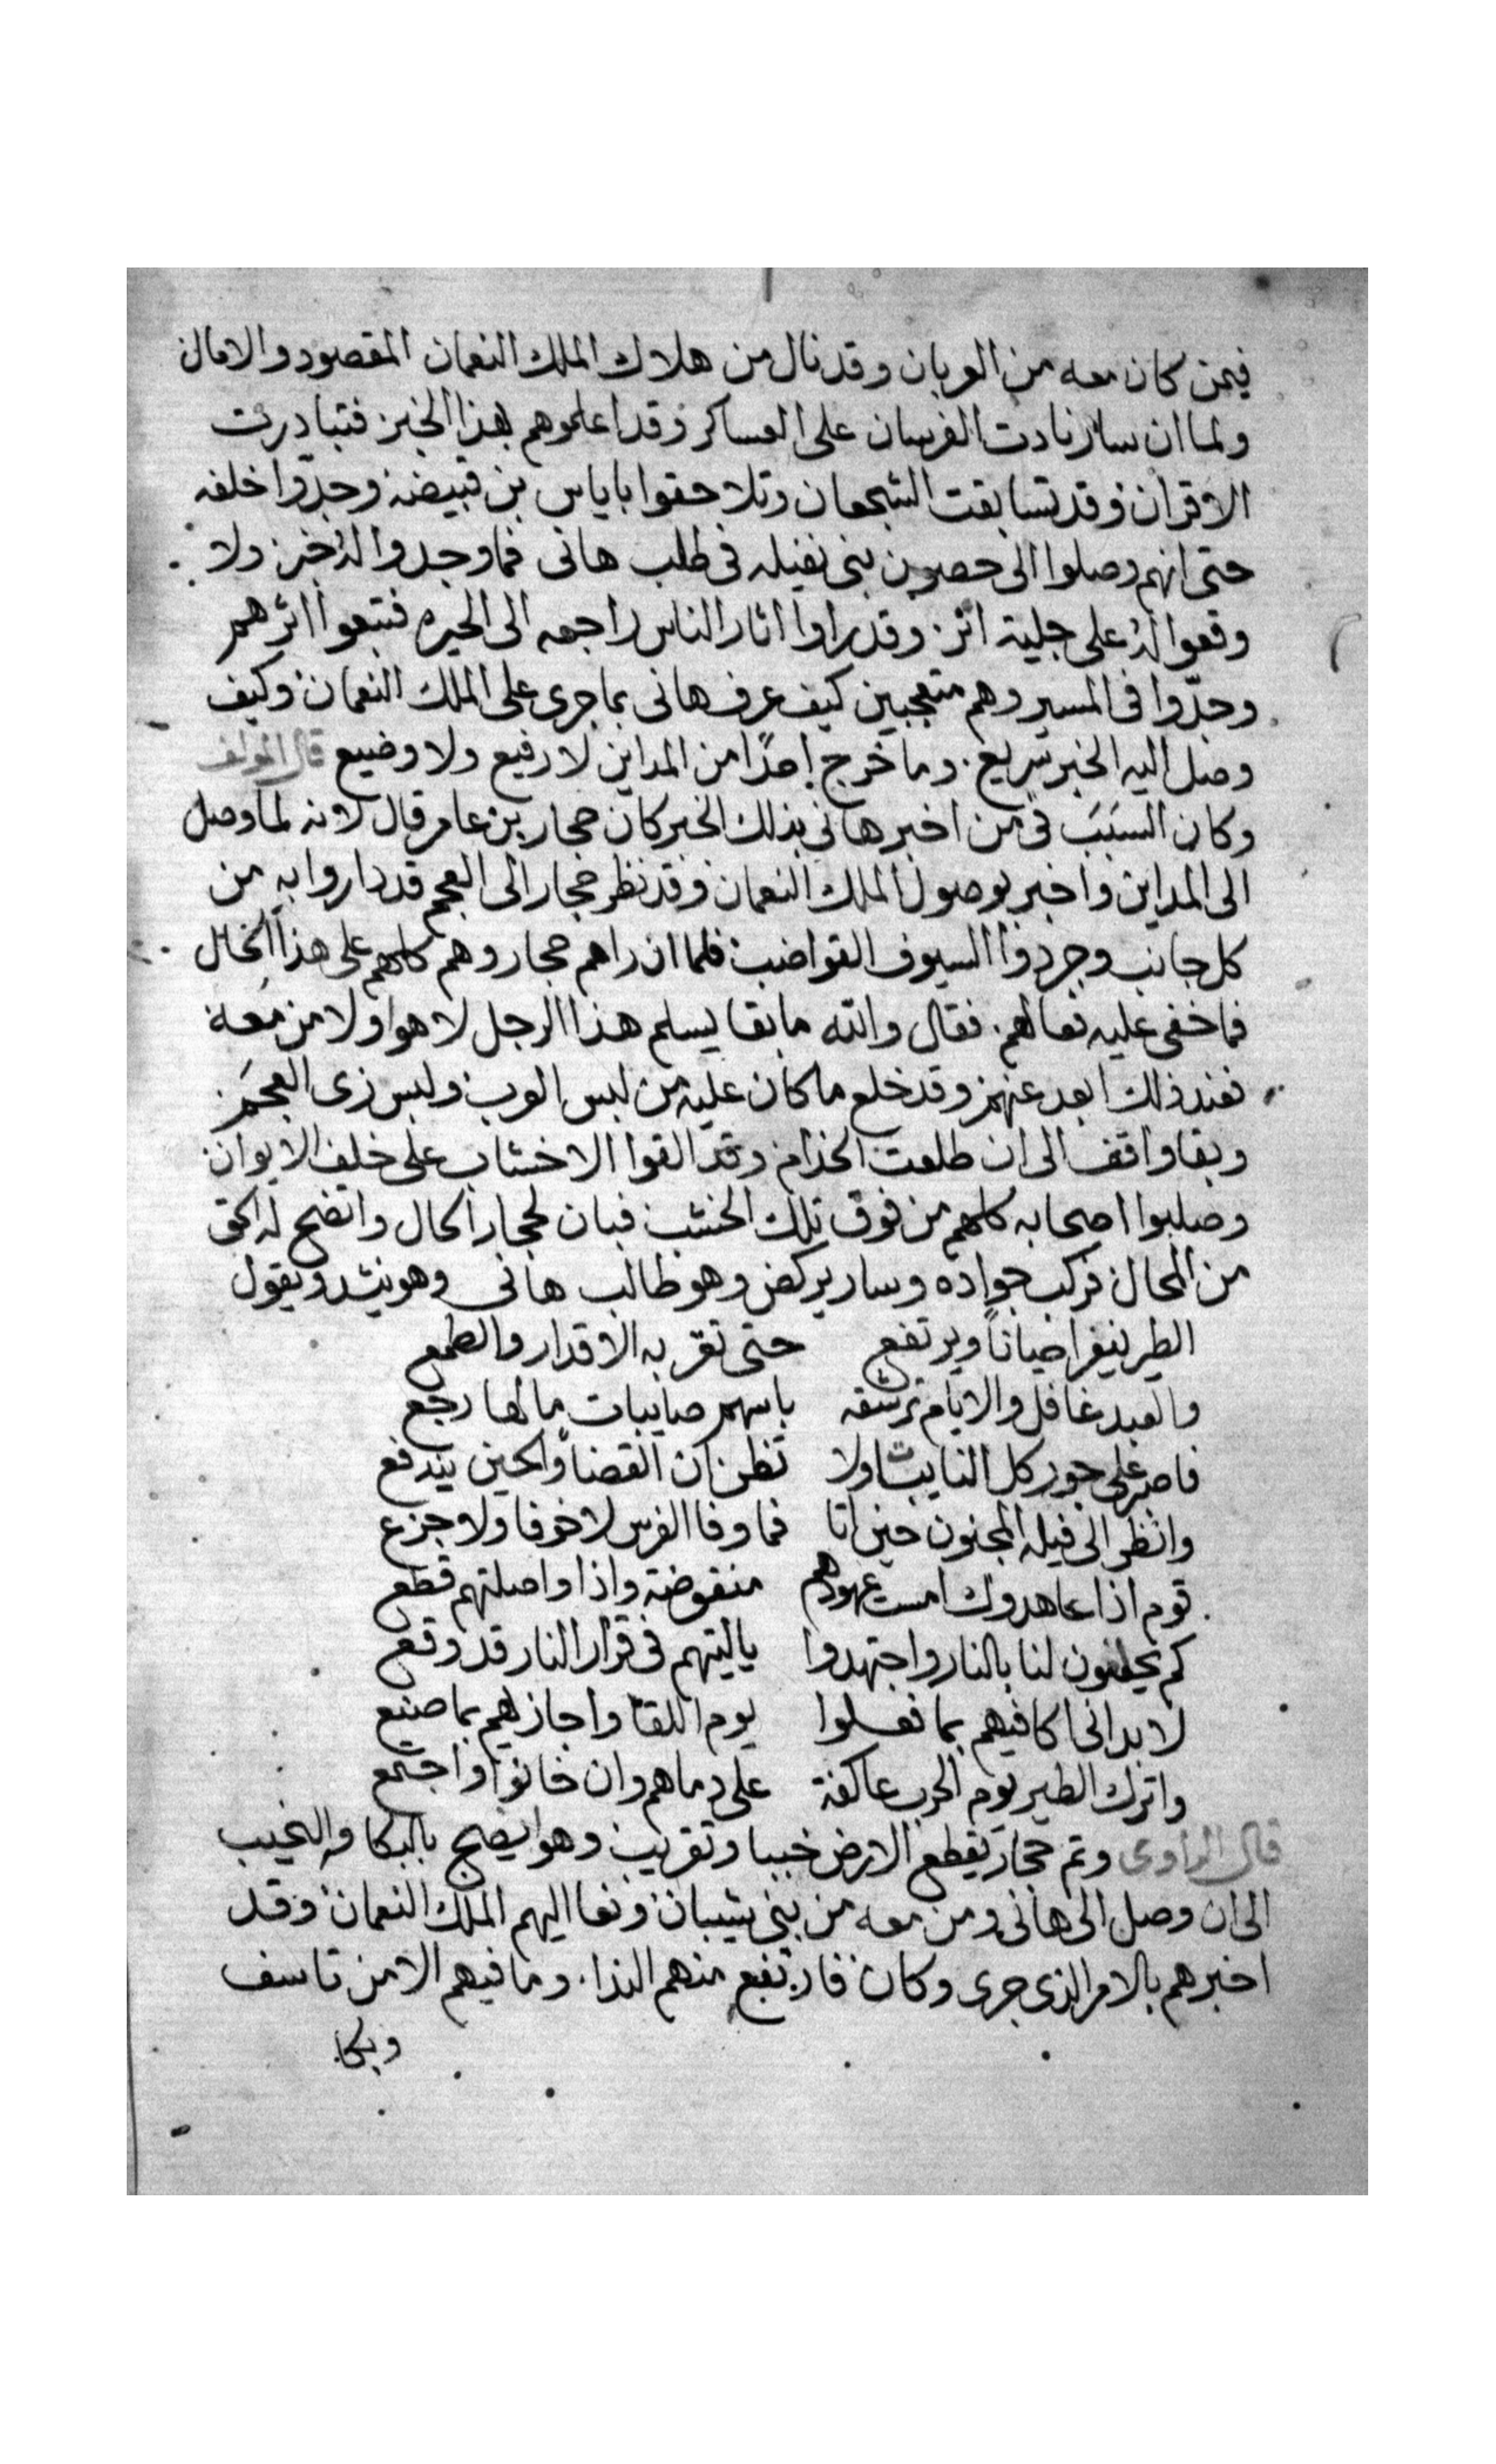 فيمن كان معه من العربان وقد نال من هلاك الملك النعمان المقصود والامال
ولما ان سار نادت الفرسان على العساكر وقد اعلموهم بهذا الخبر فتبادرت
الاقران وقد تسابقت الشجعان وتلاحقوا باياس بن قبيضه وجدّوا خلفه
حتى انهم وصلوا الى حصون بنى نفيله فى طلب هانى فما وجدوا له خبر ولا
وقعوا له على جلية اثر وقد راوا اثار الناس راجعه الى الحيره فتبعوا اثرهم
وجدّوا فى المسير وهم متعجبين كيف عرف هانى بما جرى على الملك النعمان وكيف
وصل اليه الخبر سريع وما خرج احدًا من المداين لا رفيع ولا وضيع قال المولف
وكان السبَبَ فى من اخبر هانى بذلك الخبر كان حجار بن عامر قال لانه لما وصل
الى المداين واخبر بوصول الملك النعمان وقد نظر حجار الى العجم قد داروا به من
كل جانب وجردوا السيوف القواضب فلما ان راهم حجار وهم كلهم على هذا الحال
فما خفى عليه فعالهم فقال والله ما بقا يسلم هذا الرجل لا هوا ولا من معه
فعند ذلك ابعد عنهم وقد خلع ما كان عليه من لبس العرب ولبس زى العجَم
وبقا واقف الى ان طلعت الخدام وقد القوا الاخشاب على خلف الايوان
وصلبوا اصحابه كلهم من فوق تلك الخشب فبان لحجار الحال واتضح له الحق
من المحال فركب جواده وسار يركض وهو طالب هانى وهو ينشد ويقول
الطير ينفر احياناً ويرتفع حتى تغر به الاقدار والطمع
والعبد غافل والايام ترشقه باسهم صايبات ما لها رجع
فاصبر على جور كل النايبات ولا تظن ان القضاً والحين يندفع
وانظر الى فيله المجنون حين اتا فما وفا الفرس لا خوفا ولا جزع
قوم اذا عاهدوك امست عهودهم منقوضة واذا واصلتهم قطع
كم يحلفون لنا بالنار واجتهدوا ياليتهم فى قرار النار قد وقع
لا بد انى اكافيهم بما فعلوا يوم اللقا واجازيهم بما صنيع
واترك الطير يوم الحرب عاكفة على دماهم وان خانوا واجتمع
قال الراوى وتم حجار يقطع الارض خببا وتقريب وهو ايضج بالبكا والنحيب
الى ان وصل الى هانى ومن معه من بنى شيبان ونعا اليهم الملك النعمان وقد
اخبرهم بالامر الذى جرى وكان فارتفع منهم الندا وما فيهم الا من تاسف
وبكا